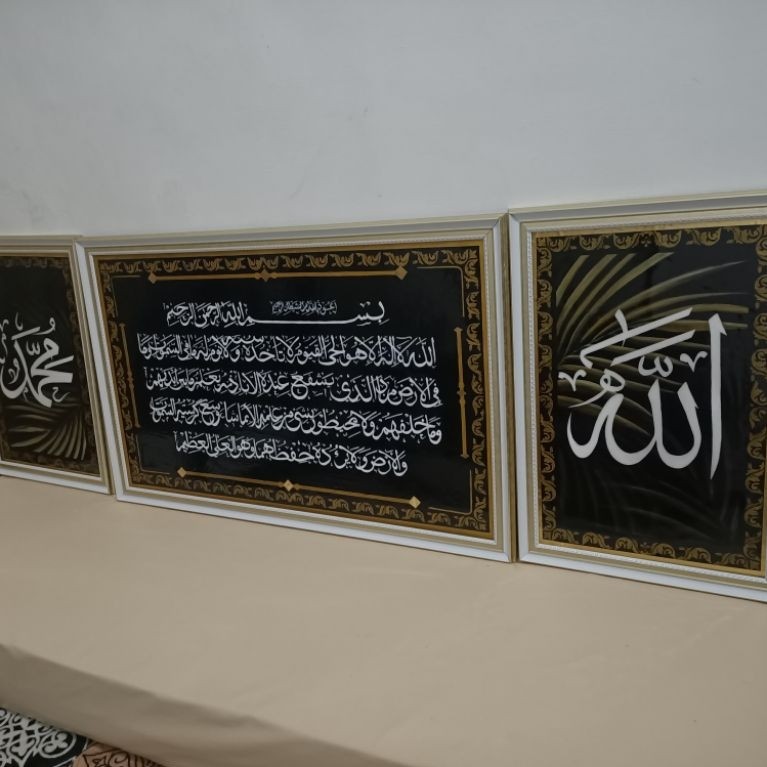 الله
بسم الله الرحمن الرحيم
الله لا اله الا هو الحي القيوم لا تأخذه سنة ولا نوم له ما في السموت وما
في الارض من ذا الذي يشفع عنده الا باذنه يعلم ما بين ايديهم
وما خلفهم ولا يحيطون بشيء من علمه الا بما شاء وسع كرسيه السموت
والارض ولا يؤده حفظهما وهو العلي العظيم
محمد